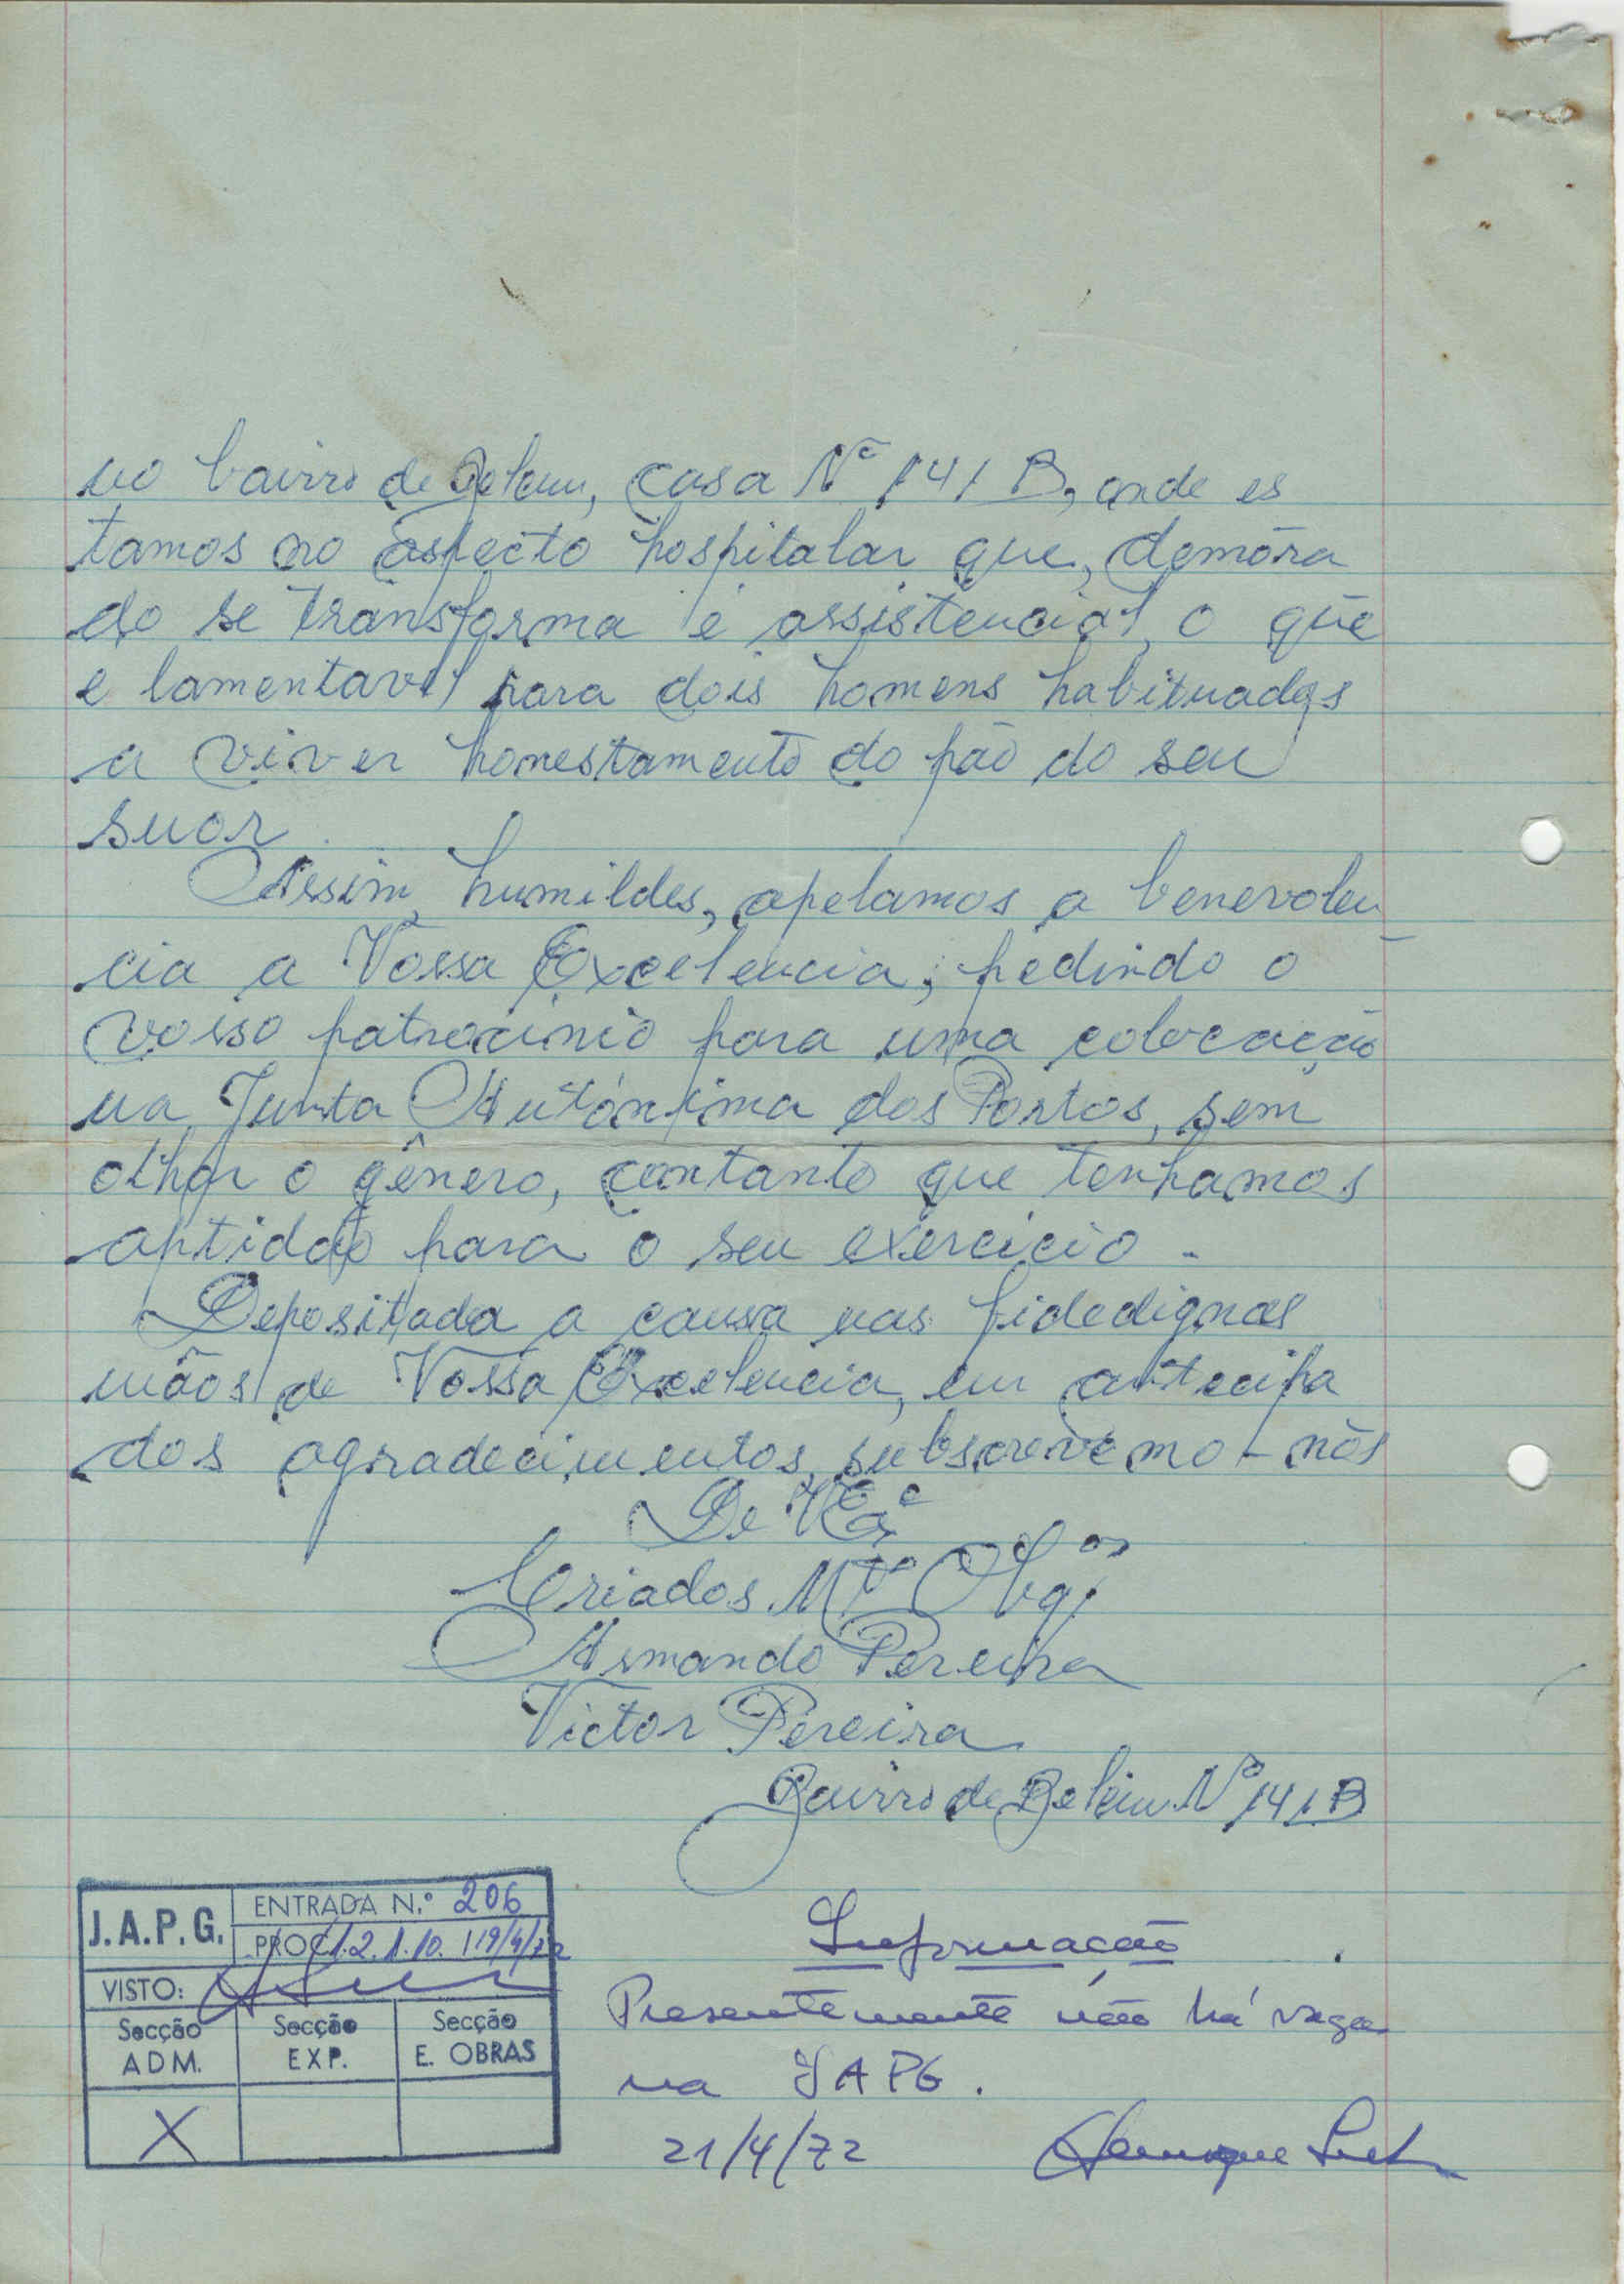 no bairro de Belem, casa Nº 141 B, onde es
tamos no aspecto hospitalar que, demóra
do se transforma é assistencial, o que
e lamentavel para dois homens habituados
a viver honestamente do pão do seu
suor.
Assim, humildes, apelamos a benevolen
cia a Vossa Excelencia, pedindo o
vosso patrocinio para uma colocação
na Junta Autónima dos Portos, sem
olhar o gênero, contanto que tenhamos
aptidão para o seu exercicio -
Depositada a causa nas fidedignas
mãos de Vossa Excelencia, em antecipa
dos agradecimentos, subscrevemo-nòs
De V Exª
Criados Mtº Obgºs
Armando Pereira
Victor Pereira
Bairro de Belem Nº 141 B
J.A.P.G.
ENTRADA N.º 206
PROC. 1.2.1.10. 19/4/72
VISTO:
Secção ADM.
Secção EXP.
Secção E. OBRAS
X
Informação
Presentemente não há vagas
na JAPG.
21/4/72
Henrique